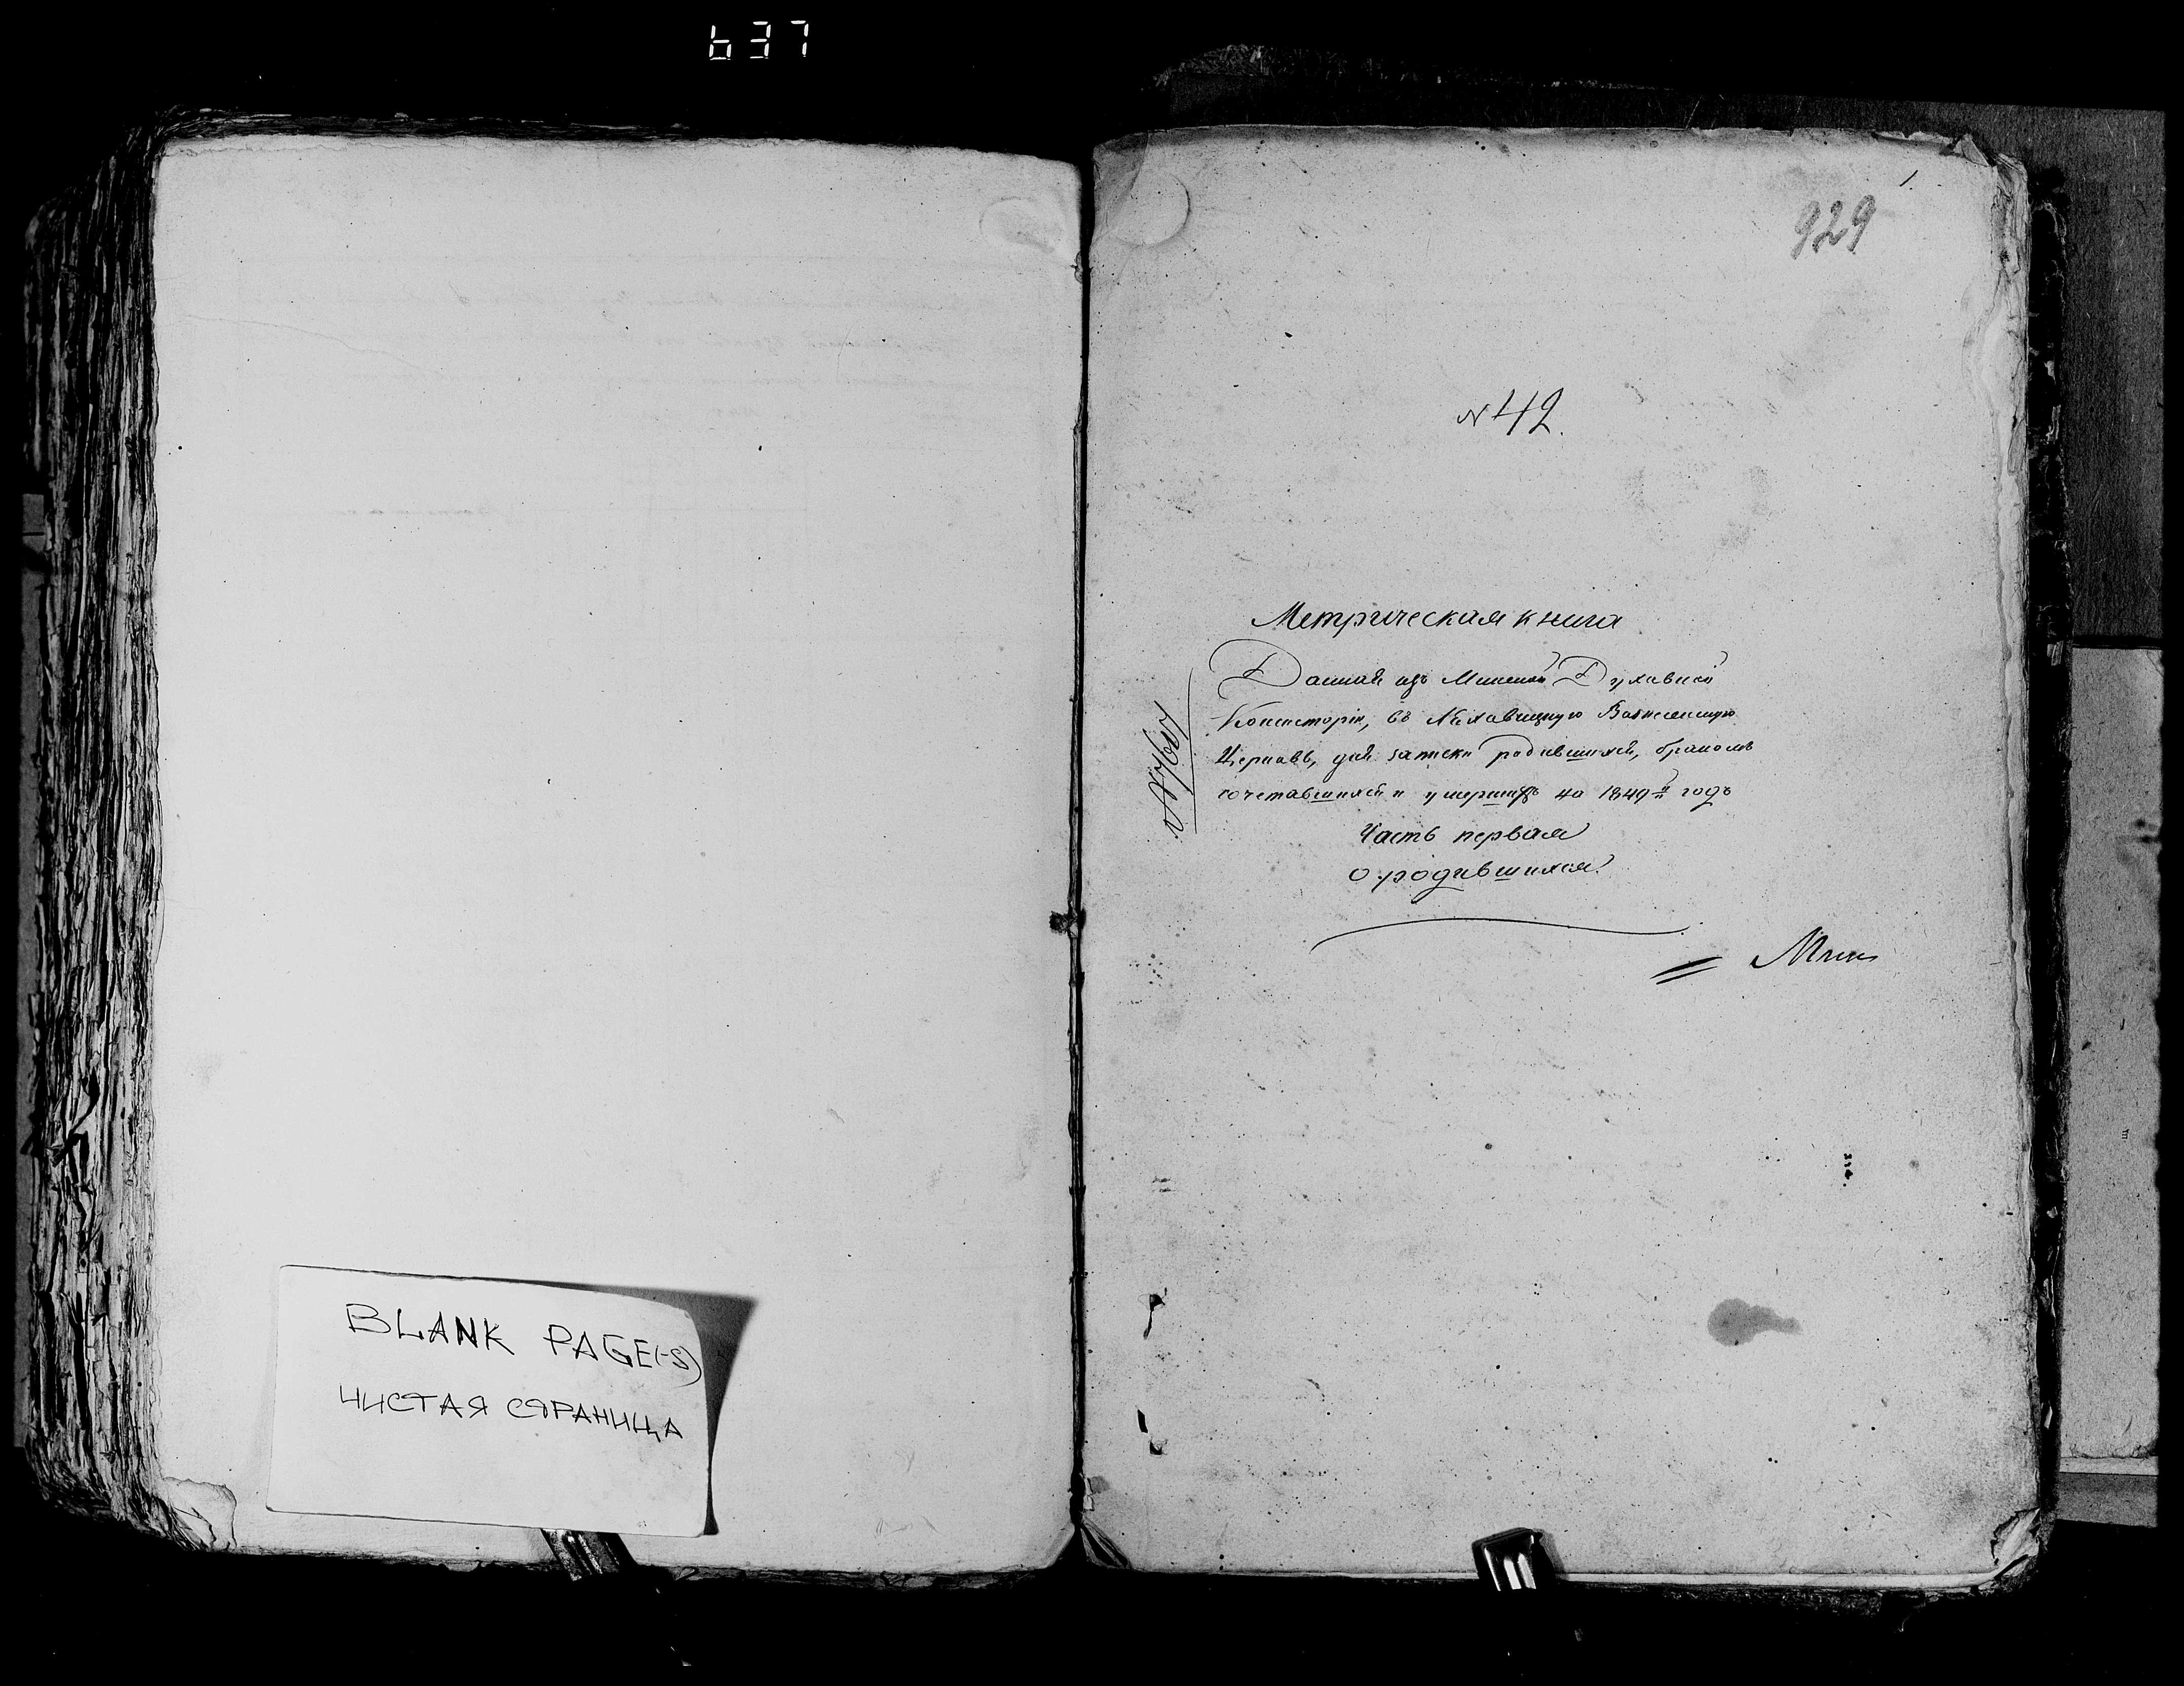 637
BLANK PAGE(-S)
ЧИСТАЯ СТРАНИЦА
1.
929
N 42.
Метрическая книга
Данная изъ Минской Духовной
Консисторіи, въ Вознесенскую
Церковь, для записки родившихся, бракомъ
сочетавшихся и умершихъ на 1849й годъ
Часть первая
о родившихся.